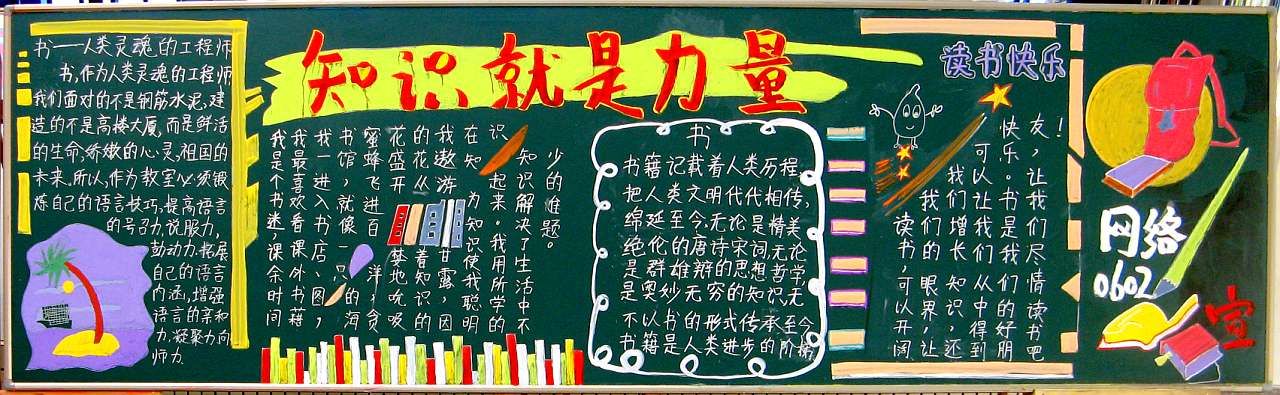 书——人类灵魂的工程师
书,作为人类灵魂的工程师
我们面对的不是钢筋水泥,建
造的不是高楼大厦,而是鲜活
的生命,娇嫩的心灵,祖国的
未来。所以,作为教室必须锻
炼自己的语言技巧,提高语言
的号召力,说服力,
鼓动力,拓展
自己的语言
内涵,增强
语言的亲和
力,凝聚力,向
师力.
知识就是力量
我是个书迷,课余时间
我最喜欢看课外书籍
我一进入书店、图
书馆,就像一只
蜜蜂飞进百
花盛开
的花丛
我遨游
在知
识
的海
洋,贪
婪地吮吸
着知识的
甘露,因
为知识使我聪明
起来。我用所学的
知识解决了生活中不
少的难题。
书
书籍记载着人类历程,
把人类文明代代相传,
绵延至今,无论是精美
绝伦的唐诗宋词,无论
是群雄辩的思想哲学
是奥妙无穷的知识,无
不以书的形式传承至今
书籍是人类进步的阶梯
读书快乐
读书,可以开阔
我们的眼界,让
我们增长知识,还
可以让我们从中得到
快乐。书是我们的好朋
友,让我们尽情读书吧
!
网络
0602
宣